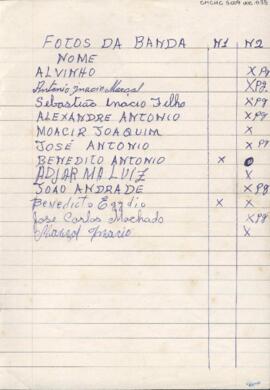 FOTOS DA BANDA N1 N2
NOME
ALVINHO X Pg
Antônio Ignacio Marçal X Pg
Sebastião Inácio Filho X Pg
ALEXANDRE ANTONIO X Pg
MOACIR JOAQUIM X Pg
JOSÉ ANTONIO X Pg
BENEDITO ANTONIO X
ADJARMA LUIZ X
JOÃO ANDRADE X Pg
Benedicto Egydio X X
José Carlos Machado X Pg
Manoel Inacio X